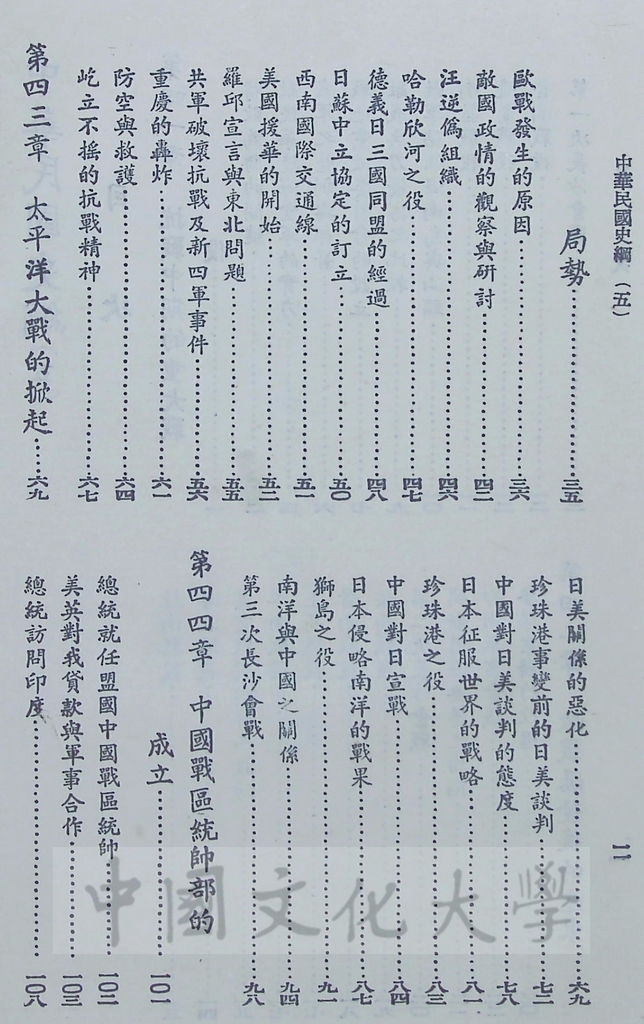 中華民國史綱（五）
二
局勢……三五
歐戰發生的原因……三六
敵國政情的觀察與研討……四二
汪逆僞組織……四六
哈勒欣河之役……四七
德義日三國同盟的經過……四八
日蘇中立協定的訂立……五〇
西南國際交通線……五一
美國援華的開始……五二
羅邱宣言與東北問題……五五
共軍破壞抗戰及新四軍事件……五六
重慶的轟炸……六一
防空與救護……六四
屹立不搖的抗戰精神……六七
第四三章　太平洋大戰的掀起……六九
日美關係的惡化……六九
珍珠港事變前的日美談判……七二
中國對日美談判的態度……七八
日本征服世界的戰略……八一
珍珠港之役……八三
中國對日宣戰……八四
日本侵略南洋的戰果……八七
獅島之役……九一
南洋與中國之關係……九四
第三次長沙會戰……九八
第四四章　中國戰區統帥部的
成立……一〇一
總統就任盟國中國戰區統帥……一〇二
美英對我貸款與軍事合作……一〇三
總統訪問印度……一〇八
中國文化大學